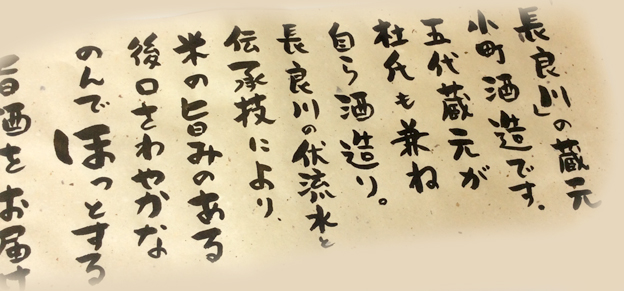 長良川」の蔵元
小町酒造です.
五代蔵元が
杜氏も兼ね
自ら酒造り。
長良川の伏流水と
伝承技により、
米の旨みのある
後口さわやかな
のんでほっとする
旨酒をお届け